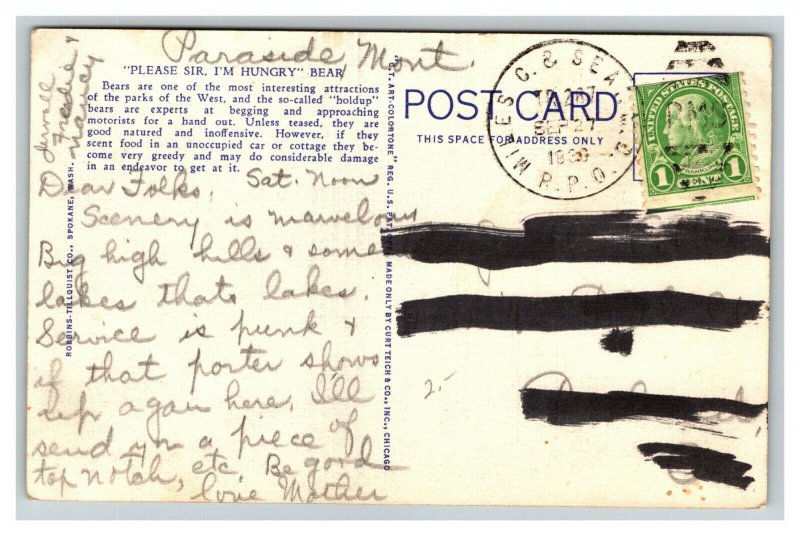 Paraside, Mont.
Jewell
Freddie &
Nancy
"PLEASE SIR, I'M HUNGRY" BEAR
Bears are one of the most interesting attractions
of the parks of the West, and the so-called "holdup"
bears are experts at begging and approaching
motorists for a hand out. Unless teased, they are
good natured and inoffensive. However, if they
scent food in an unoccupied car or cottage they be-
come very greedy and may do considerable damage
in an endeavor to get at it.
Dear Folks. Sat. Noon
Scenery is marvelous
Big high hills & some
lakes thats lakes.
Service is punk &
if that porter shows
up again here, I'll
send you a piece of
top notch, etc Be good
love Mother
ROBBINS-TILLQUIST CO., SPOKANE, WASH.
"C.T. ART-COLORTONE" REG. U.S. PAT. OFF.
MADE ONLY BY CURT TEICH & CO., INC., CHICAGO
POST CARD
THIS SPACE FOR ADDRESS ONLY
MILES C. & SEA
SEP 27
R.P.O.
RMS
UNITED STATES POSTAGE
FRANKLIN
1 CENT 1
2.-